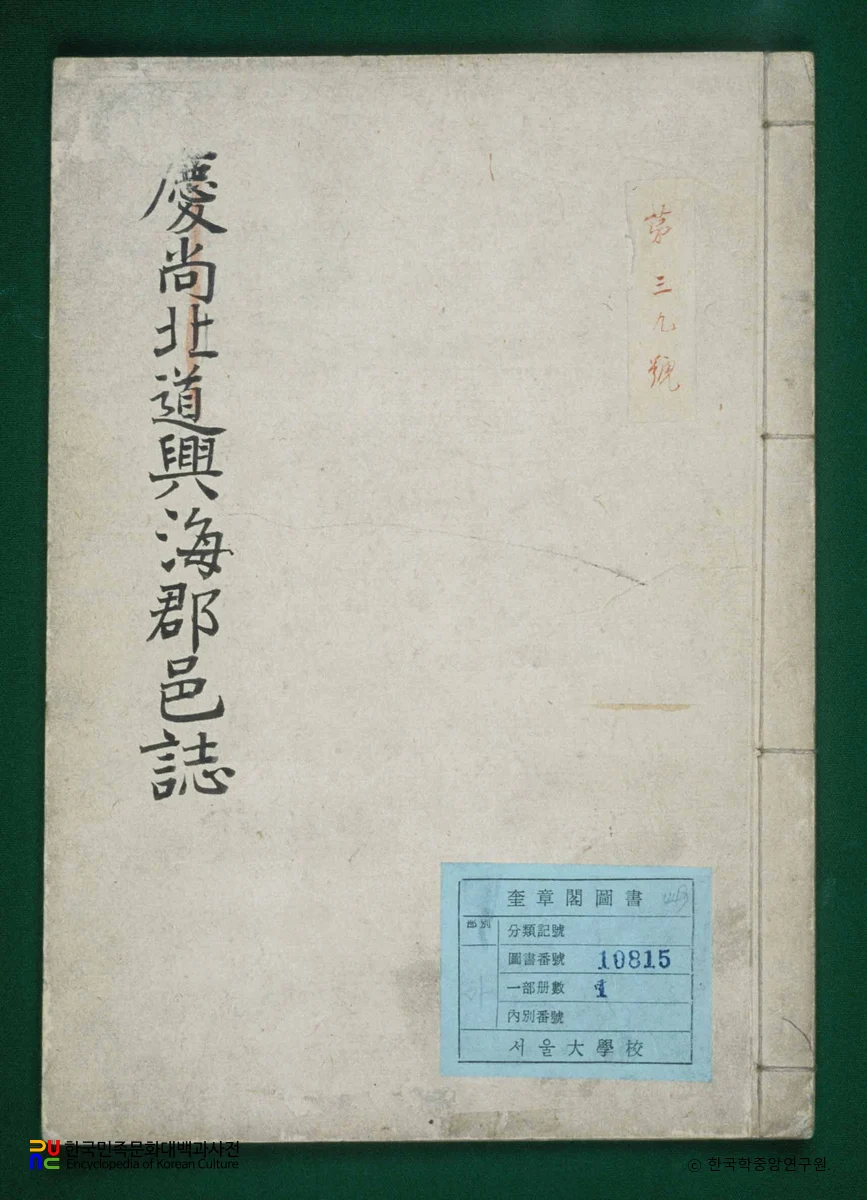 慶尚北道興海郡邑誌
第三九號
奎章閣圖書
部別
分類記號
圖書番號 10815
一部册數 1
內別番號
서울大學校
한국민족문화대백과사전
Encyclopedia of Korean Culture
© 한국학중앙연구원